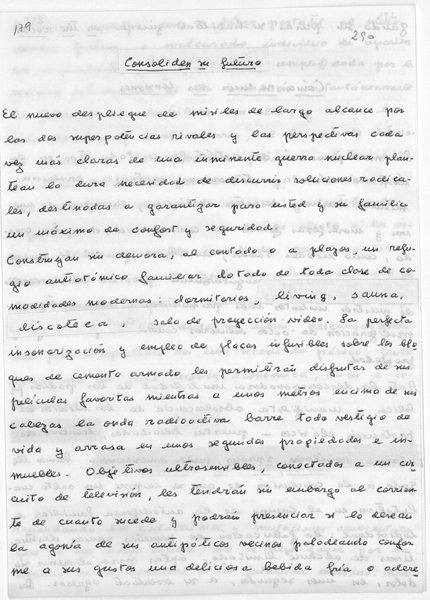 179
230
Consoliden su futuro
El nuevo despliegue de misiles de largo alcance por
las dos superpotencias rivales y las perspectivas cada
vez más claras de una inminente guerra nuclear plan-
tean la dura necesidad de discurrir soluciones radica-
les, destinadas a garantizar para usted y su familia
un máximo de confort y seguridad.
Construyan sin demora, al contado o a plazos, un refu-
gio antiatómico familiar dotado de toda clase de co-
modidades modernas: dormitorios, living, sauna,
discoteca, sala de proyección video. La perfecta
insonorización y empleo de placas infusibles sobre los blo-
ques de cemento armado les permitirán disfrutar de sus
películas favoritas mientras a unos metros encima de sus
cabezas la onda radioactiva barre todo vestigio de
vida y arrasa en unos segundos propiedades e in-
muebles. Objetivos ultrasensibles, conectados a un cir-
cuito de televisión, les tendrán sin embargo al corrien-
te de cuanto sucede y podrán presenciar si lo desean
la agonía de sus antipáticos vecinos paladeando confor-
me a sus gustos una deliciosa bebida fría o adere-